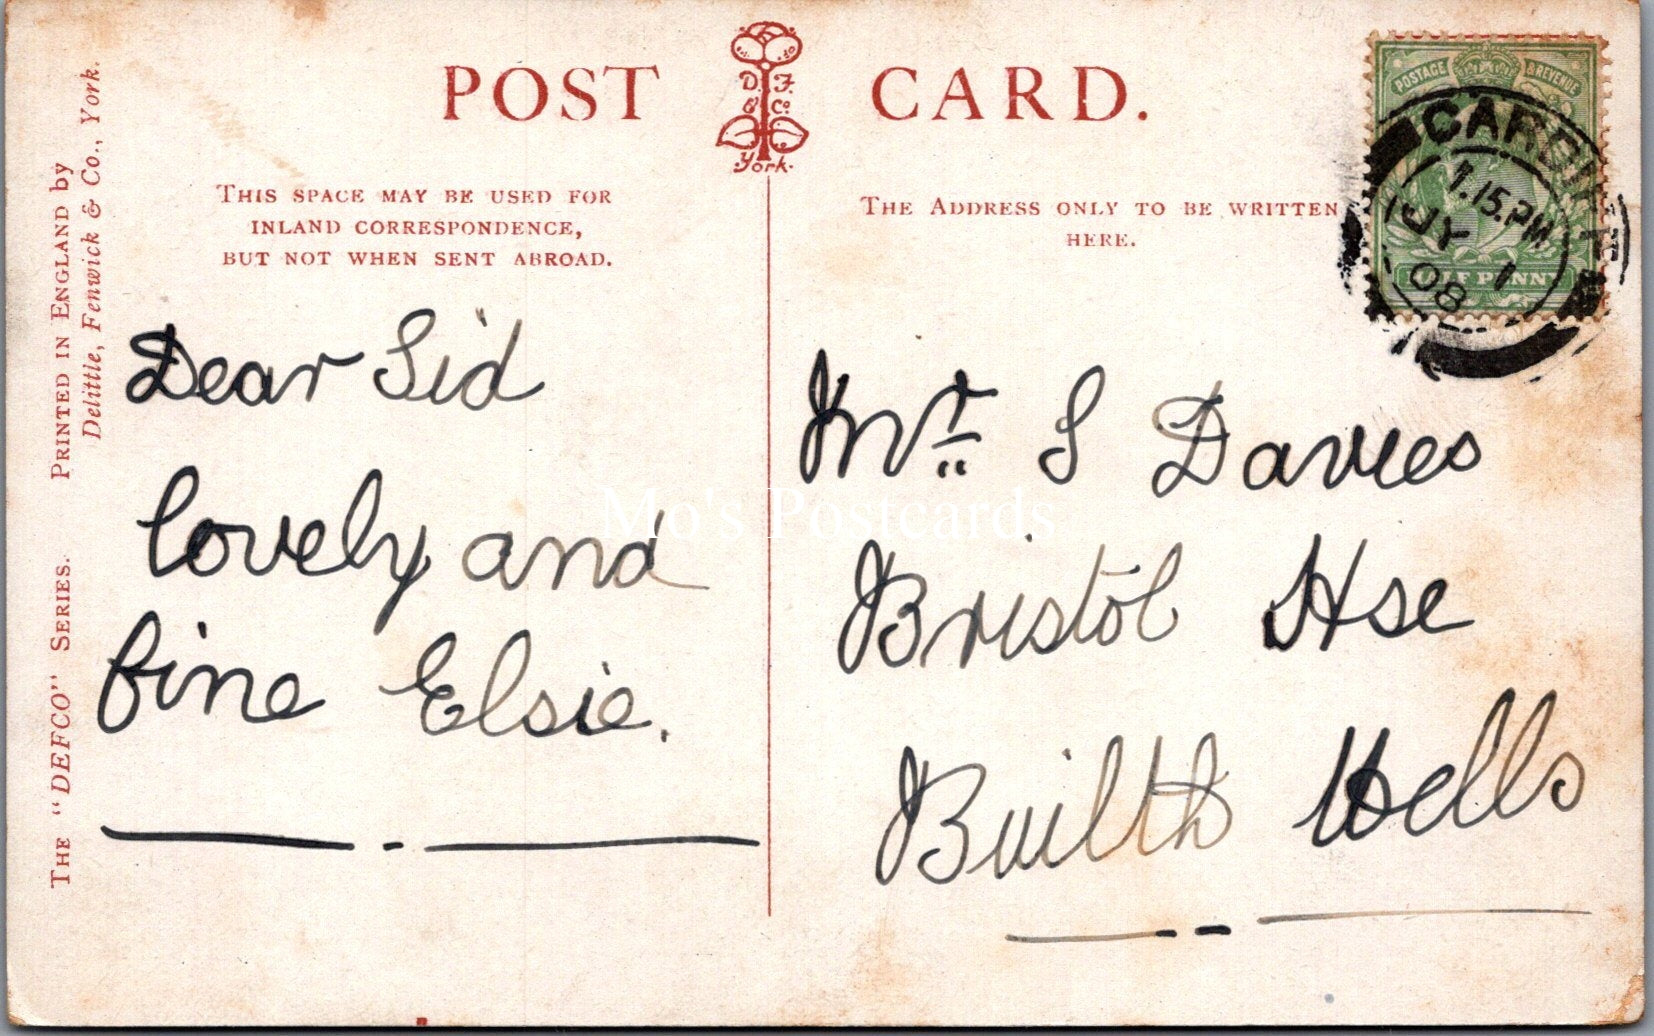 POST CARD.
D. F. & Co.
York.
THIS SPACE MAY BE USED FOR
INLAND CORRESPONDENCE,
BUT NOT WHEN SENT ABROAD.
THE ADDRESS ONLY TO BE WRITTEN
HERE.
POSTAGE & REVENUE
CARDIFF
1.15.PM
JY 1
08
HALF PENNY
PRINTED IN ENGLAND by
Delittle, Fenwick & Co., York.
THE "DEFCO" SERIES.
Dear Sid
lovely and
fine Elsie.
Mr. S Davies
Bristol Hse
Builth Wells
Mo's Postcards